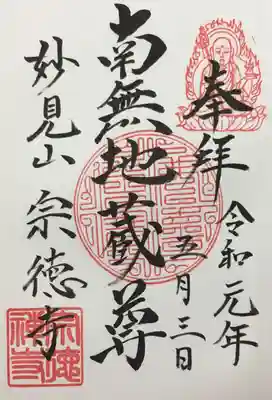 奉拝
令和元年
五月三日
南無地蔵尊
妙見山 宗徳寺
宗徳